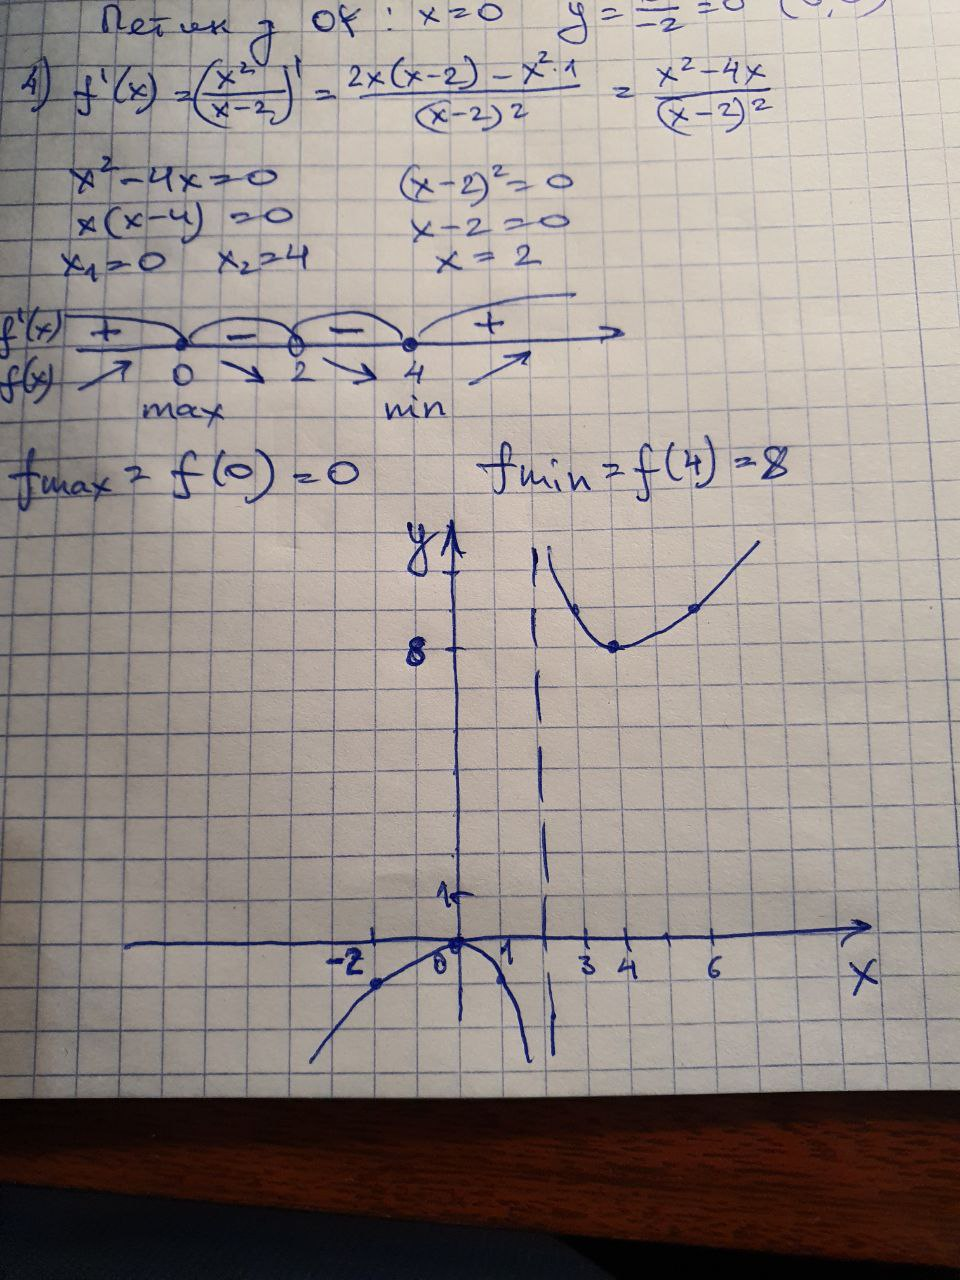 Перетин з OY: x=0 y=0/-2=0
4) f'(x) = (x²/(x-2))' = (2x(x-2) - x²·1)/(x-2)² = (x²-4x)/(x-2)²
x²-4x=0 (x-2)²=0
x(x-4)=0 x-2=0
x₁=0 x₂=4 x=2
f'(x) + - - +
f(x) ↗ 0 ↘ 2 ↘ 4 ↗
max min
fmax = f(0) = 0 fmin = f(4) = 8
y
8
1
-2 0 1 3 4 6 x